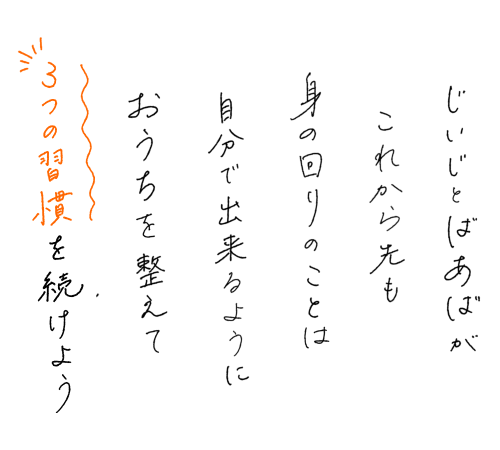 じいじとばあばが
これから先も
身の回りのことは
自分で出来るように
おうちを整えて
3つの習慣を続けよう